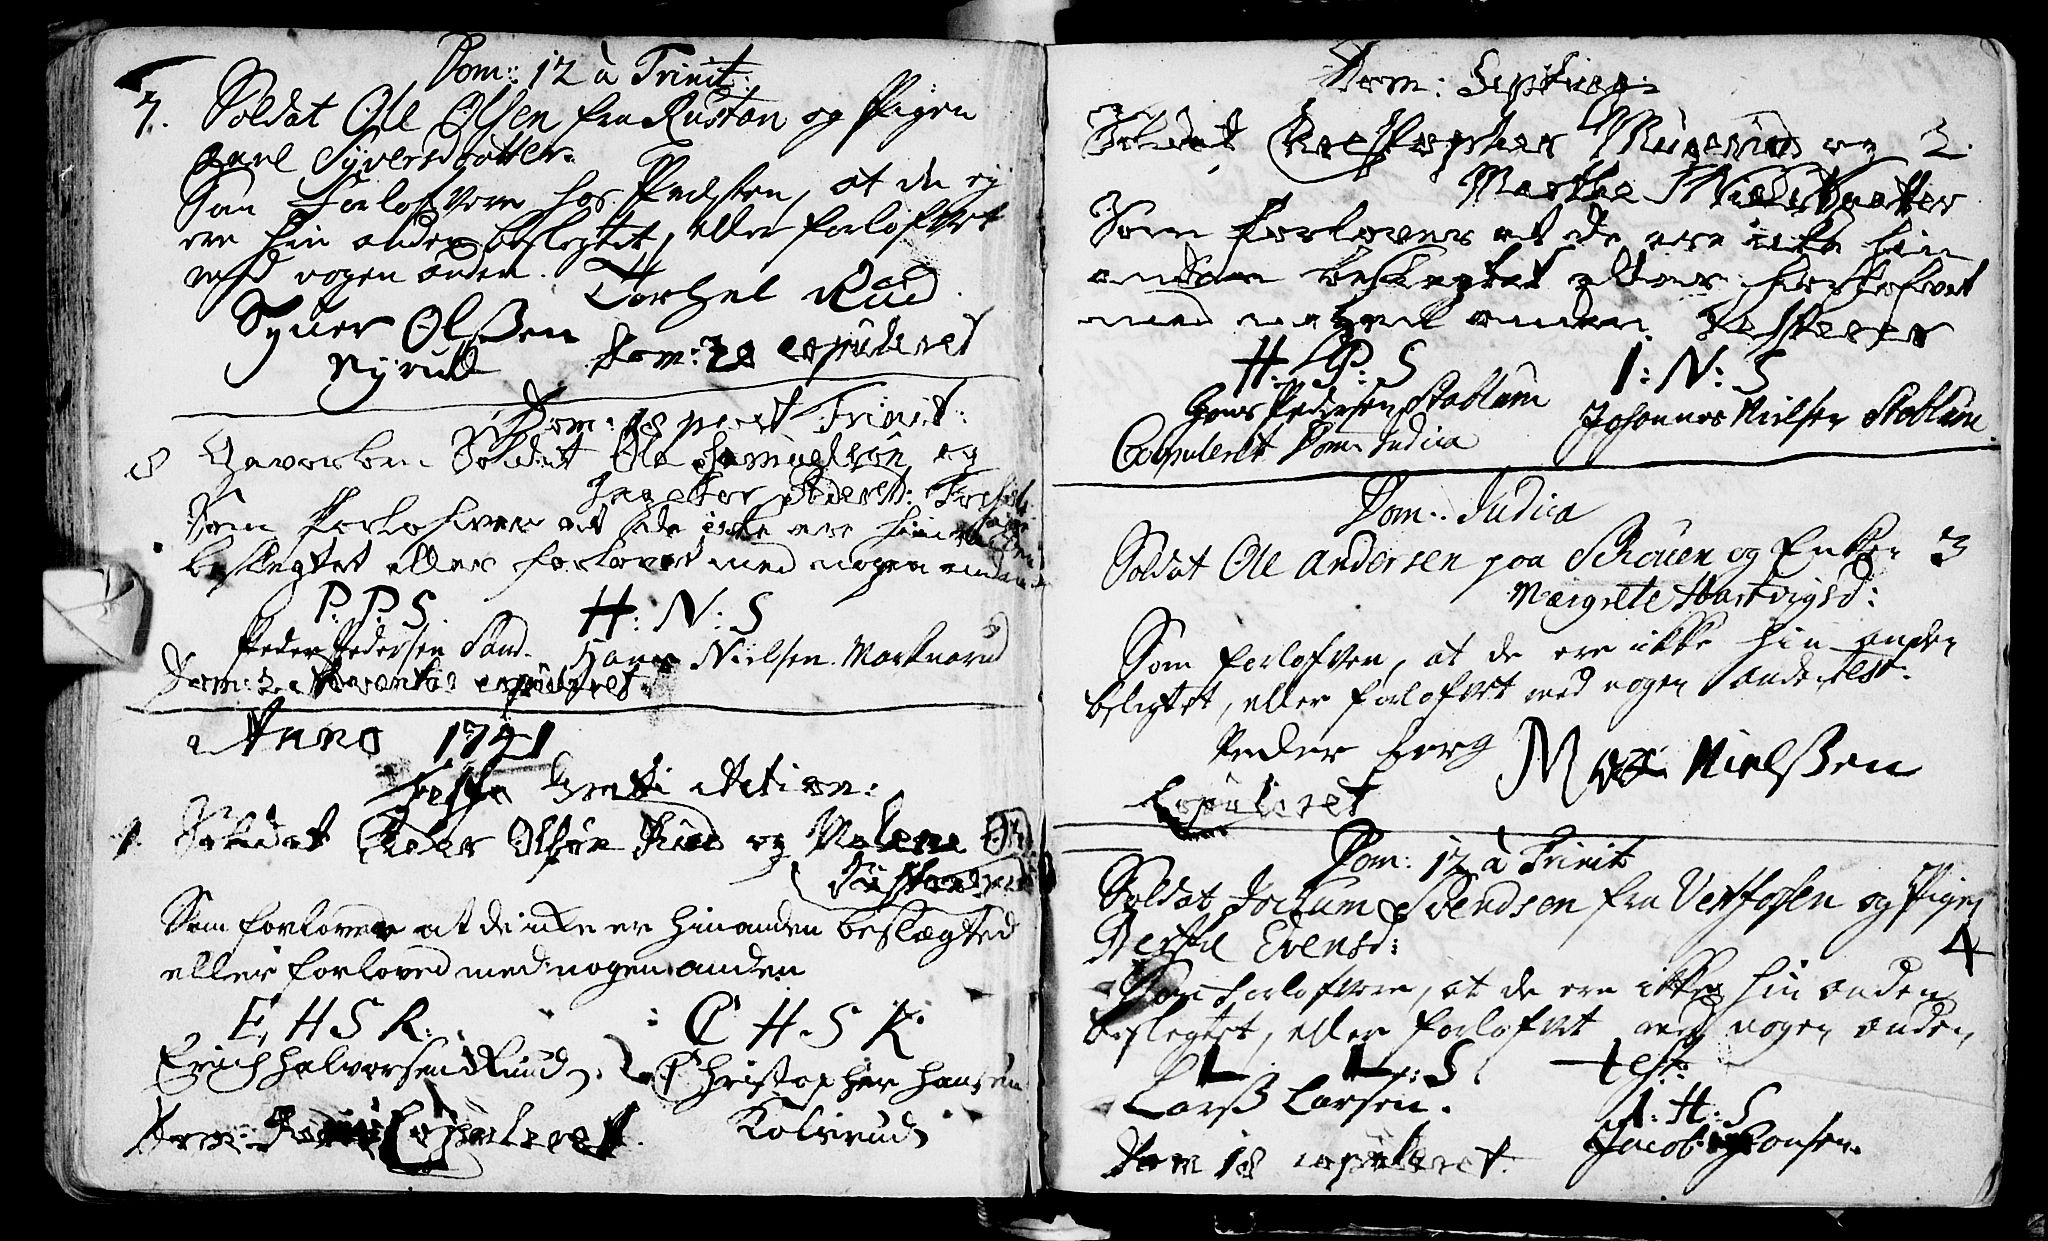 Dom: 12 à Trinit:
7. Soldat Ole Olsen fra Rustan og Pigen
Syversdatter.
Som forlofvere hos Præsten, at de ej
ere hin anden beslegtet, eller forlofvet
med nogen anden. Torchel Rud
Syuer Olßen
Nyrud Dom: 20 copuleret
Dom: 18 post Trinit:
8 Soldat Ole Samuelsøn og
Som forlofver at de icke ere hin anden
beslegtet eller forlovet med nogen anden
P: P: S H: N: S
Peder Pedersen Sand. Hans Nielsen
Dom: 2 Adventus copuleret
Anno 1741
Festo
1. Soldat Peder Olsøn Rue og Malene
Som forlover at de icke er hinanden beslægted
eller forloved med nogen anden
E, H S R: C H S K
Erich halvorsen Ruud Christopher hansen
Kolsrud
Dom: Copuleret.
Dom: Septuag:
Soldat Christopher og 2.
Marthe Nielsdaatter
Som forlover at de ere icke hin
anden beslegtet eller forlofvet
med nogen anden. Testerer
H: P: S I: N: S
Hans Pedersen Stablum Johannes Nielsen Stablum
Copuleret Dom: Judica
Dom: Judica
Soldat Ole Andersen paa Schouen og Enken 3
Margrete Hartvigsd:
Som forlofver, at de ere ikke hin anden
beslegtet, eller forlofvet med nogen anden test:
Peder berg Nielßen
Copuleret
Dom: 12 à Trinit:
Soldat Jochum Svendsen fra Vestfossen og Pigen
Berthe Evensd: 4
Som forlofvere, at de ere ikke hin anden
beslegtet, eller forlofvet med nogen anden,
L L: S. test:
Larß Larsen. I: H: S
Jacob Hansen.
Dom 18 copuleret.